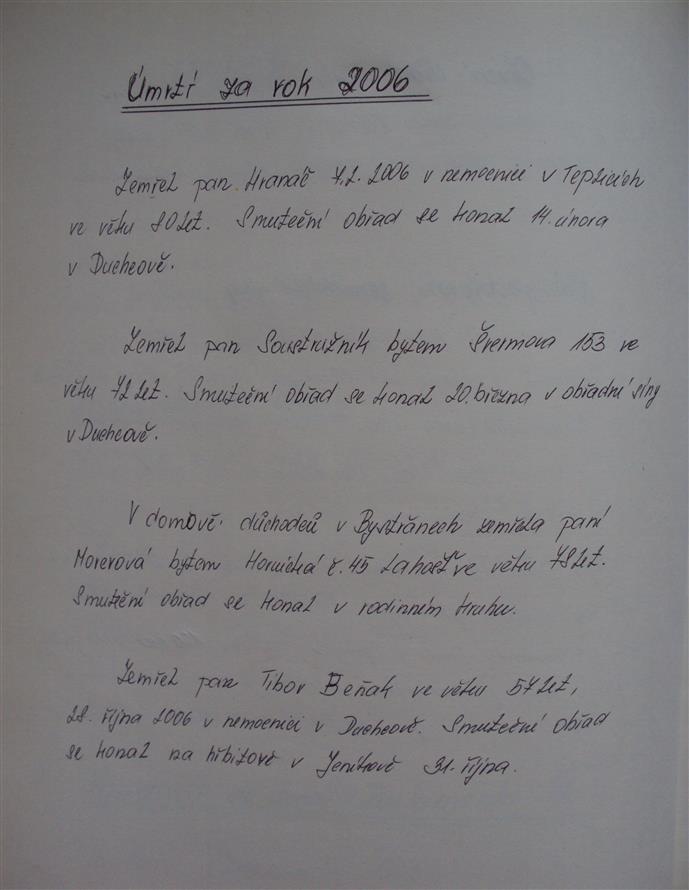 Úmrtí za rok 2006
Zemřel pan Hranáč 7.2. 2006 v nemocnici v Teplicích
ve věku 80 let. Smuteční obřad se konal 14. února
v Duchcově.
Zemřel pan Soustružník bytem Švermova 153 ve
věku 72 let. Smuteční obřad se konal 20. března v obřadní síny
v Duchcově.
V domově důchodců v Bystřanech zemřela paní
Morerová bytem Hornická č. 45 Lahošť ve věku 78 let.
Smuteční obřad se konal v rodinném kruhu.
Zemřel pan Tibor Beňak ve věku 57 let,
28. října 2006 v nemocnici v Duchcově. Smuteční obřad
se konal na hřbitově v Jeníkově 31. října.